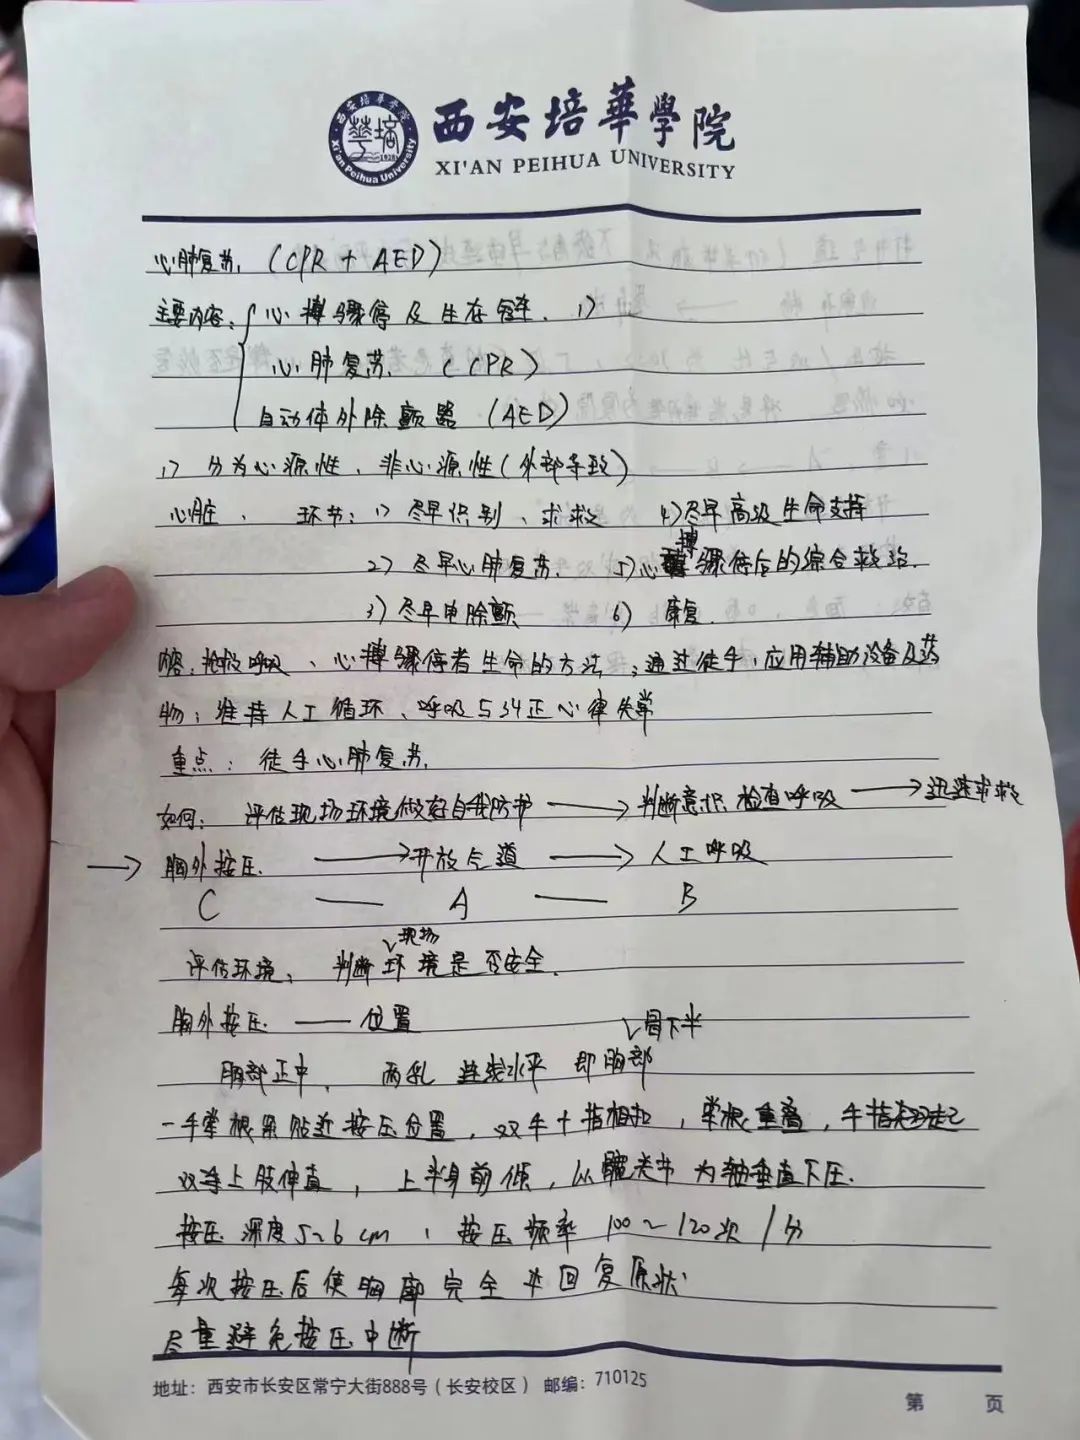 西安培華學院
XI'AN PEIHUA UNIVERSITY
心肺复苏 (CPR + AED)
主要内容: 心搏骤停及生存链 1)
心肺复苏 (CPR)
自动体外除颤器 (AED)
1) 分为心源性、非心源性(外部导致)
心脏、 环节: 1) 尽早识别、求救 4) 尽早高级生命支持
2) 尽早心肺复苏 5) 心搏骤停后的综合救治.
3) 尽早电除颤 6) 康复.
内容: 抢救呼吸、心搏骤停者生命的方法; 通过徒手、应用辅助设备及药
物; 维持人工循环、呼吸与纠正心律失常
重点: 徒手心肺复苏.
如何: 评估现场环境做好自我防护 → 判断意识 检查呼吸 → 迅速求救
→ 胸外按压 → 开放气道 → 人工呼吸
C — A — B
评估环境, 判断现场环境是否安全.
胸外按压 — 位置
胸部正中, 两乳连线水平 即胸骨下半部
一手掌根紧贴近按压位置, 双手十指相扣, 掌根重叠, 手指翘起
双上肢伸直, 上半身前倾, 以髋关节为轴垂直下压.
按压深度5~6cm, 按压频率100~120次/分
每次按压后使胸廓完全回复原状
尽量避免按压中断
地址: 西安市长安区常宁大街888号(长安校区) 邮编: 710125
第 页